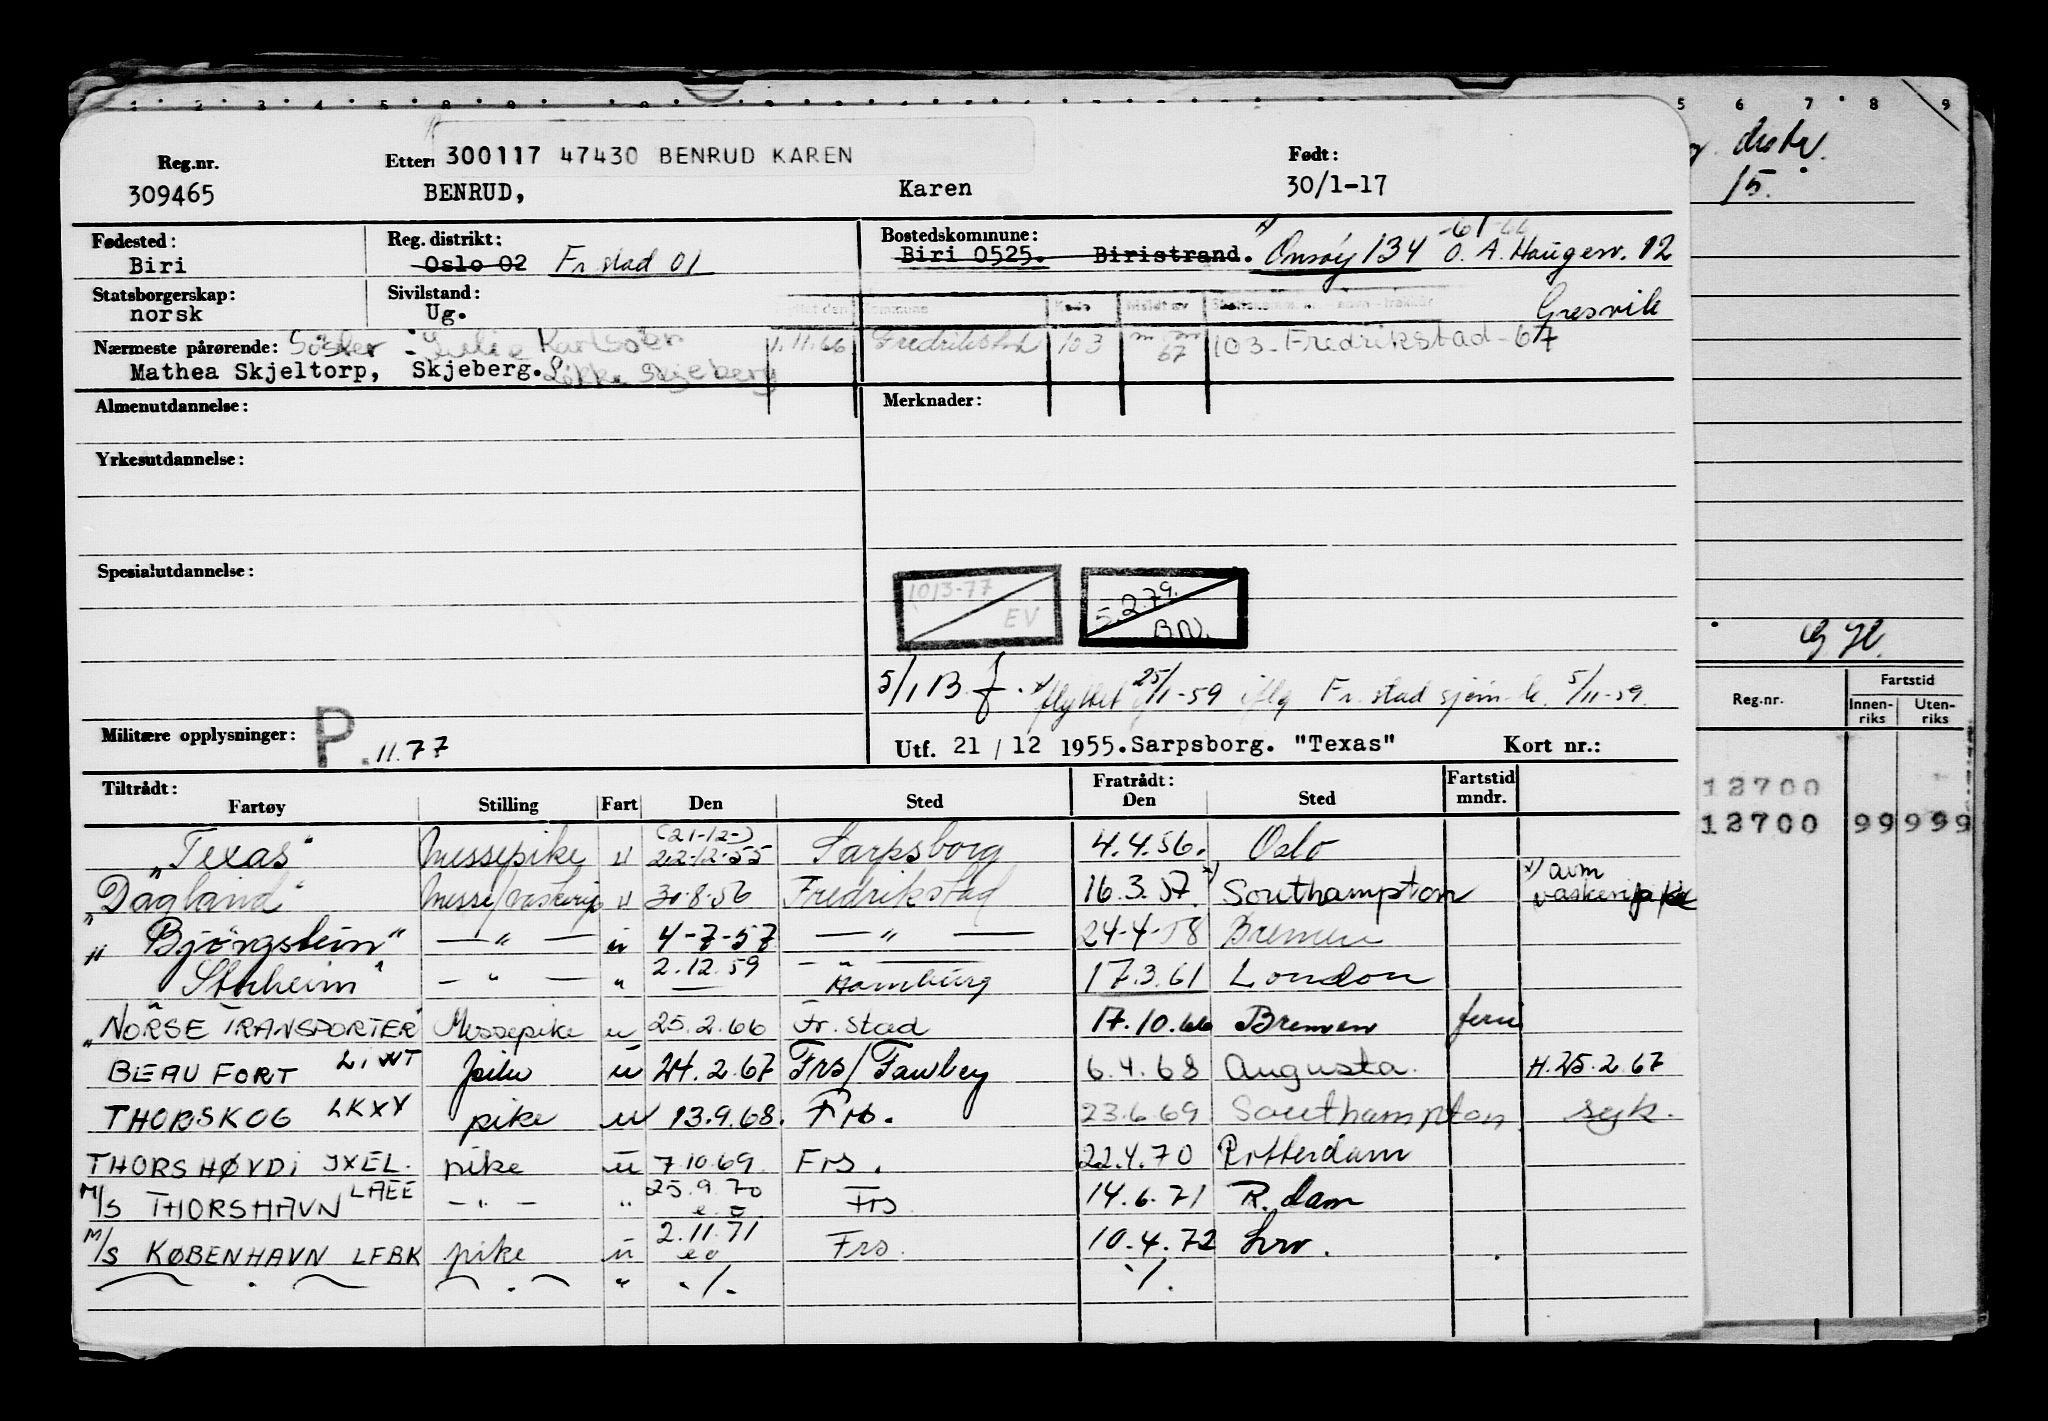 1 2 3 4 5 8 9 5 6 7 8 9
Reg.nr. Etter: 300117 47430 BENRUD KAREN Født:
309465 BENRUD, Karen 30/1-17
Fødested: Reg. distrikt: Bostedskommune:
Biri Oslo 02 Fr.stad 01 Biri 0525. Biristrand. x) Onsøy 134 O. A. Haugesv. 12
Statsborgerskap: Sivilstand: Gresvik
norsk Ug.
Nærmeste pårørende: Søster - Karlsen 1.11.66 Fredrikstad 103 67 103 - Fredrikstad - 67
Mathea Skjeltorp, Skjeberg. Skjeberg
Almenutdannelse: Merknader:
Yrkesutdannelse:
Spesialutdannelse:
1013-77 EV
5.2.79. BN.
5/1 B f. x) flyttet 25/1-59 iflg Fr.stad sjøm.k. 5/11-59.
Militære opplysninger: P. 11.77
Utf. 21/12 1955. Sarpsborg. "Texas" Kort nr.:
Tiltrådt: Fratrådt: Fartstid
Fartøy Stilling Fart Den Sted Den Sted mndr.
(21-12-)
"Texas" Messepike u 22-12-55 Sarpsborg 4.4.56. Oslo
"Dagland" Messe/vaskeripike u 30-8-56 Fredrikstad 16.3.57. x) Southampton x) avm vaskeripike
"Björgsheim" — " — u 4-7-57 — " — 24-4-58 Bremen
— " — " 2.12.59 Hamburg 17.3.61 London
"NORSE TRANSPORTER" Messepike u 25.2.66 Fr.stad 17.10.66 Bremen ferie
BEAUFORT pike u 24.2.67 Frs/Fawley 6.4.68 Augusta. H.25.2.67
THORSKOG LKXY pike u 13.9.68. Frs. 23.6.69 Southampton syk.
THORSHØVDI JXEL. pike u 7.10.69. Frs. 22.4.70 Rotterdam
M/S THORSHAVN LAEE — " — " 25.9.70 Frs 14.6.71 R.dam
M/S KØBENHAVN LFBK pike u 2.11.71 Frs. 10.4.72
" . / . . / .
15.
Reg.nr. Fartstid
Innen-riks Uten-riks
12700
12700 99 999